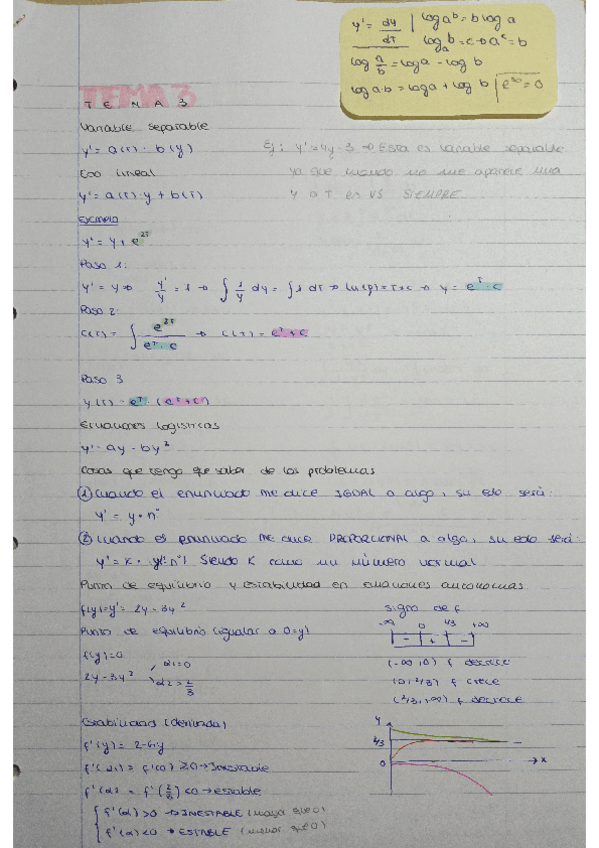 y' = dy/dT | log a^b = b log a
log_a b = c → a^c = b
log a/b = log a - log b
log a·b = log a + log b | e^∞ = 0
TEMA 3
TEMA 3
Variable separable
y' = a(T) · b(y)
Ej: y' = 4y-3 → Esta es variable separable
ya que cuando no me aparece una
y o T es VS SIEMPRE
Edo lineal
y' = a(T) · y + b(T)
Ejemplo
y' = y + e^2T
Paso 1:
y' = y → y'/y = 1 → ∫ 1/y dy = ∫ 1 dT → ln(y) = T+c → y = e^T · c
Paso 2:
c(T) = ∫ e^2T / e^T · c → c(T) = e^T + c
Paso 3
y(T) = e^T · (e^T + c)
Ecuaciones logísticas
y' = ay - by²
Cosas que tengo que saber de los problemas
① Cuando el enunciado me dice IGUAL a algo, su edo será:
② Cuando el enunciado me dice PROPORCIONAL a algo, su edo será:
Siendo K como un número normal
Punto de equilibrio y estabilidad en ecuaciones autonomas
f(y) = y' = 2y - 3y²
signo de f
Punto de equilibrio (igualar a 0 = y)
-∞ 0 2/3 +∞
- + -
f(y) = 0
2y - 3y²
α1 = 0
α2 = 2/3
(-∞, 0) f decrece
(0, 2/3) f crece
(2/3, +∞) f decrece
Estabilidad (derivada)
f'(y) = 2-6y
f'(α1) = f'(0) > 0 → Inestable
f'(α2) = f'(2/3) < 0 → estable
f'(α) > 0 → INESTABLE (mayor que 0)
f'(α) < 0 → ESTABLE (menor que 0)
y
2/3
0
x